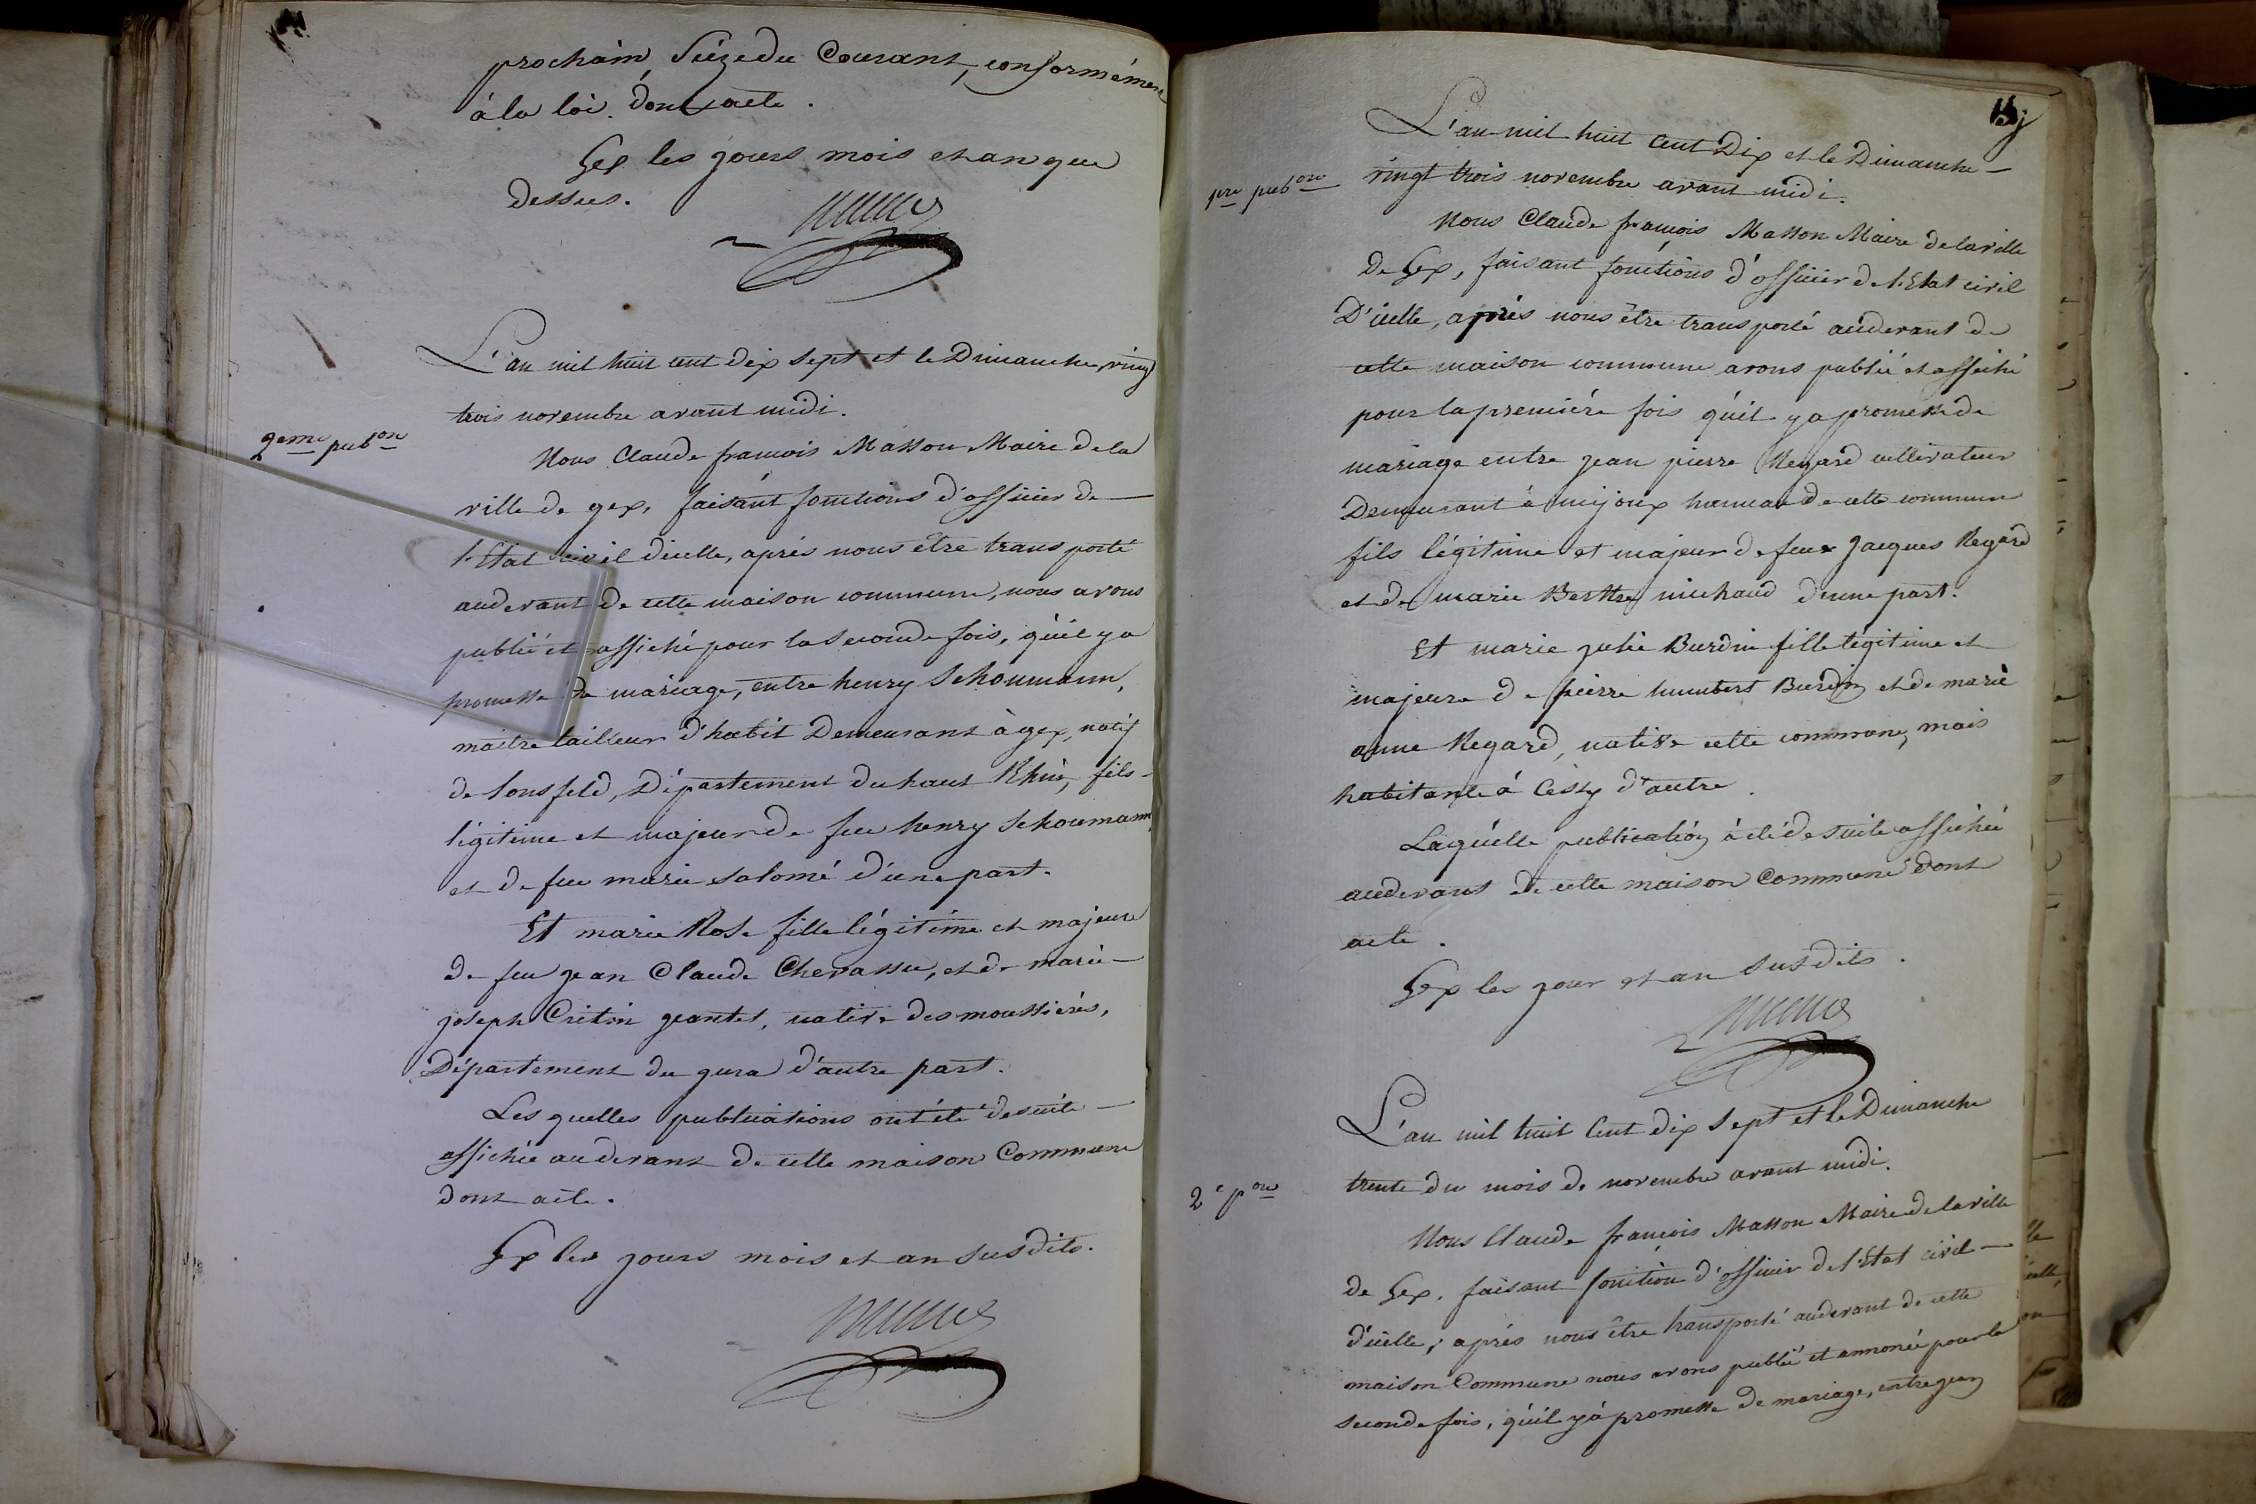 prochain, Seize du Courant, conformémen
à la loi. dont acte.
Gex les jours mois et an que
dessus.
L'an mil huit cent dix sept et le Dimanche vingt
trois novembre avant midi.
2eme pubon
Nous Claude françois Masson Maire de la
ville de gex, faisant fonctions d'officier de
l'Etat civil dicelle, après nous être transporté
audevant de cette maison commune, nous avons
publié et affiché pour la seconde fois, qu'il y a
promesse de mariage, entre henry Schoumann,
maitre tailleur d'habit Demeurant à gex, natif
de Sonsfeld, Département du haut Rhin, fils
légitime et majeur de feu henry Schoumann,
et de feu marie salomé d'une part.
Et marie Rose fille légitime et majeure
de feu jean Claude Chevassu, et de marie
joseph Critin geantet, native des moussieres,
Département du jura d'autre part.
Les quelles publications ont été de suite
affichée audevant de cette maison Commune
dont acte.
Gex les jours mois et an susdits.
L'an mil huit Cent Dix et le Dimanche
pre pubon
vingt trois novembre avant midi.
Nous Claude françois Masson Maire de la ville
De Gex, faisant fonctions d'officier de l'Etat civil
D'icelle, après nous être transporté audevant de
cette maison commune avons publié et affiché
pour la première fois qu'il y a promesse de
mariage entre jean pierre Regard cultivateur
Demeurant à mijoux hameau de cette commune
fils légitime et majeur de feu Jacques Regard
et de marie Berthe michaud d'une part.
Et marie julie Burdin fille légitime et
majeure de pierre humbert Burdin et de marie
anne Regard, native cette commune, mais
habitante à Cessy d'autre.
Laquelle publication à été de suite affichée
audevant de cette maison Commune dont
acte.
Gex les jour et an susdits.
L'an mil huit Cent dix sept et le Dimanche
trente du mois de novembre avant midi.
2e pon
Nous Claude françois Masson Maire de la ville
de Gex, faisant fonction d'officier de l'Etat civil
d'icelle, après nous être transporté audevant de cette
maison Commune nous avons publié et annoncé pour la
seconde fois, qu'il y à promesse de mariage, entre jean